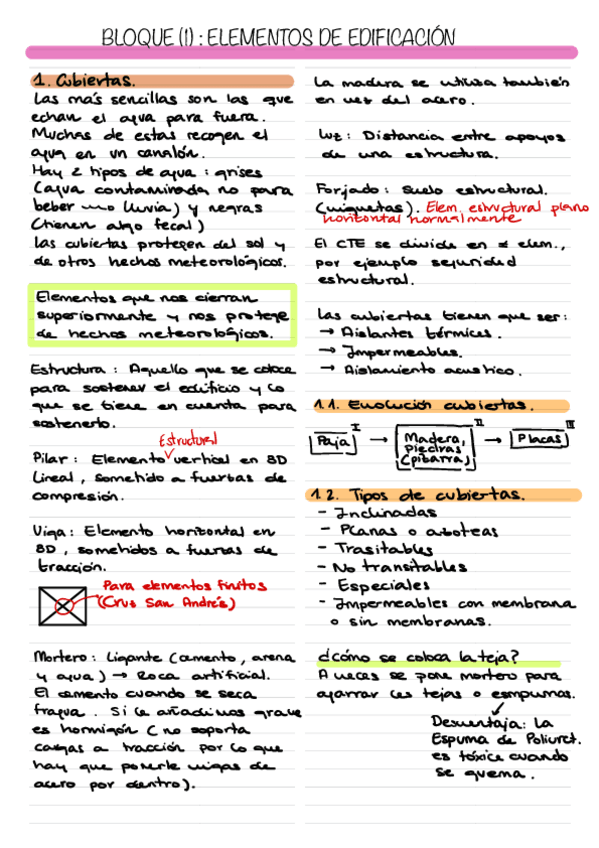 BLOQUE (1) : ELEMENTOS DE EDIFICACIÓN
1. Cubiertas.
Las más sencillas son las que
echan el agua para fuera.
Muchas de estas recogen el
agua en un canalón.
Hay 2 tipos de agua : grises
(agua contaminada no para
beber uso lluvia) y negras
(tienen algo fecal)
las cubiertas protegen del sol y
de otros hechos meteorológicos.
Elementos que nos cierran
superiormente y nos protege
de hechos meteorológicos.
Estructura : Aquello que se coloca
para sostener el edificio y lo
que se tiene en cuenta para
sostenerlo.
Estructural
Pilar : Elemento vertical en 3D
lineal, sometido a fuerzas de
compresión.
Viga : Elemento horizontal en
3D, sometidos a fuerzas de
tracción.
Para elementos finitos
(Cruz San Andrés)
Mortero : Ligante (cemento, arena
y agua) → Roca artificial.
El cemento cuando se seca
fragua. Si le añadimos grava
es hormigón (no soporta
cargas a tracción por lo que
hay que ponerle vigas de
acero por dentro).
La madera se utiliza también
en vez del acero.
Luz : Distancia entre apoyos
de una estructura.
Forjado : Suelo estructural.
(viguetas). Elem. estructural plano
horizontal normalmente
El CTE se divide en ≠ elem.,
por ejemplo seguridad
estructural.
Las cubiertas tienen que ser :
→ Aislantes térmicos.
→ Impermeables.
→ Aislamiento acustico.
1.1. Evolución cubiertas.
I II III
Paja → Madera, piedras (pizarra) → Placas
1.2. Tipos de cubiertas.
- Inclinadas
- Planas o azoteas
- Trasitables
- No transitables
- Especiales
- Impermeables con membrana
o sin membranas.
¿Cómo se coloca la teja?
A veces se pone mortero para
agarrar las tejas o espumas.
Desventaja : La
Espuma de Poliuret.
es tóxica cuando
se quema.